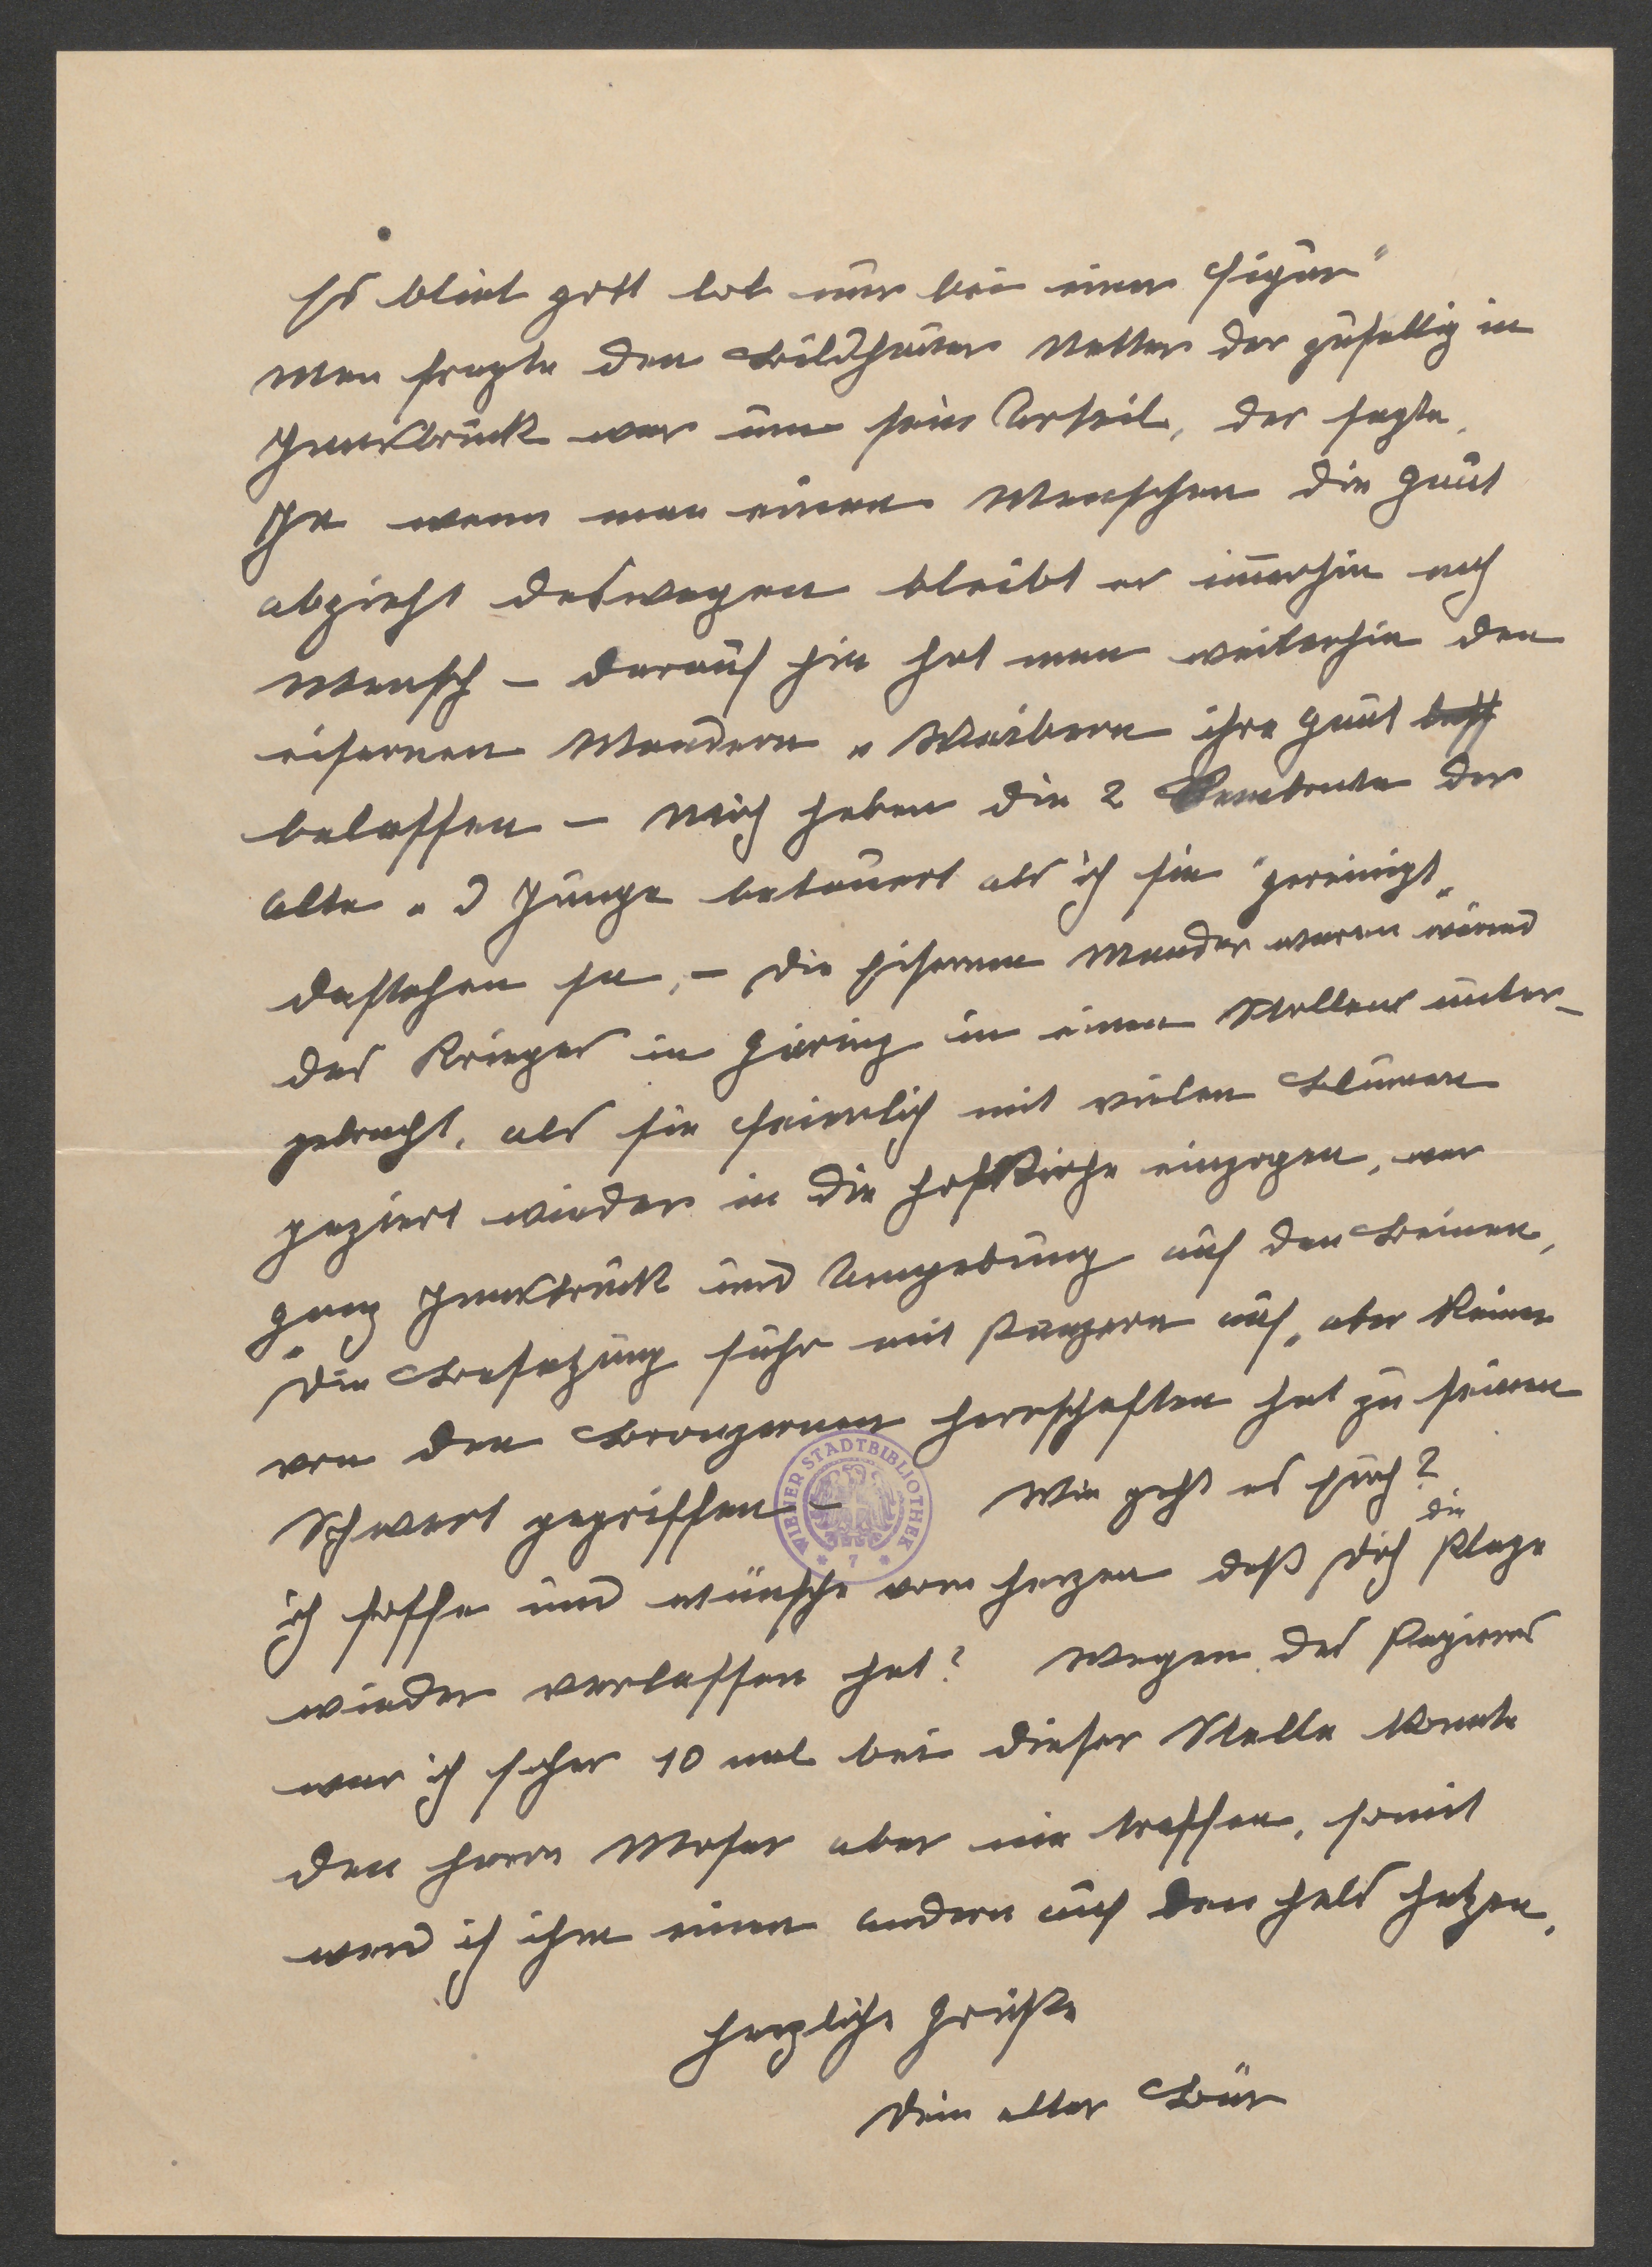 Es bliet gott lob nur bei einer Figur"
Man fragte den Bildhauer Netter der zufellig in
Innsbruck war um sein Urteil, der sagte,
Ja wenn man einen Menschen die Haut
abzieht deswegen bleibt er immerhin noch
Mensch – darauf hin hat man weiterhin den
eisernen Mandern u Weibern ihre Haut
belassen – Mich haben die 2 der
Alte u d Junge betauert als ich sie "gereinigt"
dastehen sa, – die Eisernen Mander waren wärend
des Krieges in Häring in einen Stollens unter-
gebracht, als sie feierlich mit vielen Blumen
geziert wieder in die Hofkirche einzogen, war
ganz Innsbruck und Umgebung auf den Beinen,
Die Besatzung fuhr mit Panzern auf, aber keiner
von den Bronzernen Herrschaften hat zu seinen
Schwert gegriffen – Wie geht es Euch?
ich hoffe und wünsche vom Herzen daß Dich die Plage
wieder verlassen hat? Wegen des Papieres
war ich scher 10 mal bei dieser Stelle konnte
den Herrn Moser aber nie treffen, somit
werd ich ihm einen andern auf den Hals hetzen,
Herzliche Grüße
Dein alter Bär
WIENER STADTBIBLIOTHEK
* 7 *